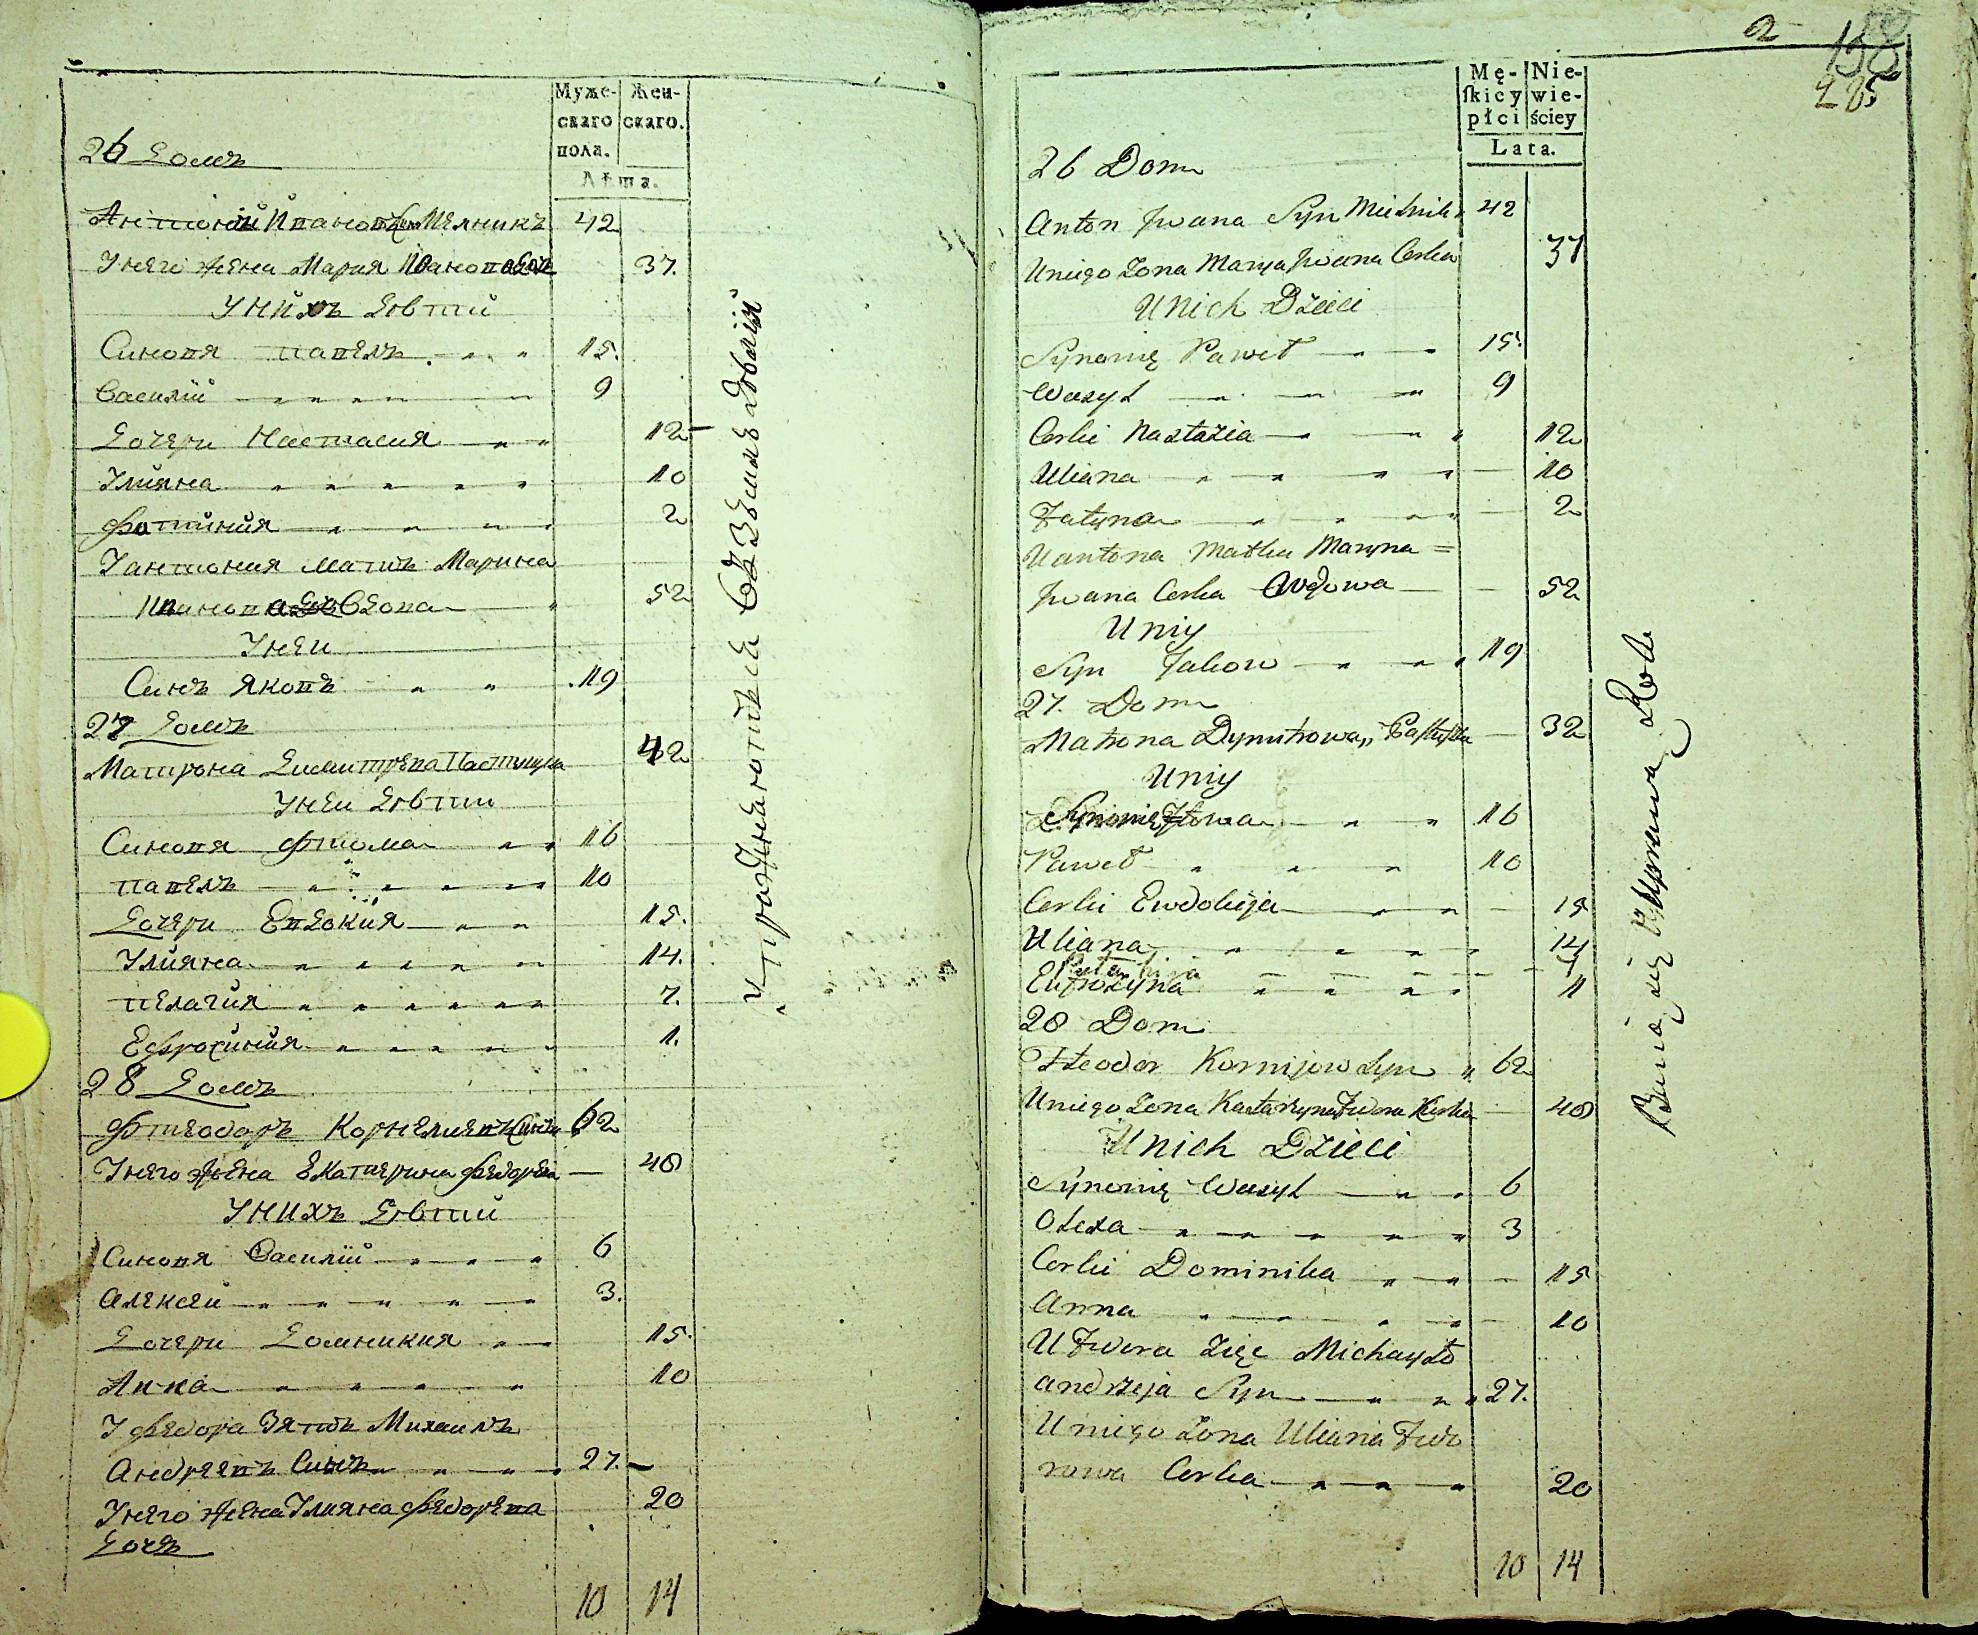 Муже-
скаго
пола.
Жен-
скаго.
Лѣта.
26 Домъ
Антоній Ивановъ Синъ Мелникъ 42
Унего жена Мария Иванова Доч 37.
Унихъ Дѣтти
Синовя Павелъ 15.
Василій 9
Дочери Настасия 12
Улияна 10
Фотиния 2
У антония мать Марина
Иванова Дочь Вдова 52
Унеи
Синъ Яковъ 19
27 Домъ
Матрона Димитрева Пастушка 42
Унеи Дѣтти
Синовя Фтома 16
Павелъ 10
Дочери Евдокия 15.
Улияна 14.
Пелагия 7.
Ефросиния 1.
28 Домъ
Фтеодоръ Корнелиевъ Синъ 62
Унего жена Екатерина Федорова 48
Унихъ Дѣтти
Синовя Василій 6
Алексеи 3.
Дочери Домникия 15.
Анна 10
У федора Зять Михаилъ
Андреевъ Синъ 27.
Унего жена Улияна Федорева 20
Дочь
10 14
Упражняются Въ Земледѣлія
2
158
285
Mę-
skicy
płci
Nie-
wie-
ściey
Lata.
26 Dom
Anton Jwana Syn Mielnik 42
Uniego Zona Marya Jwana Corka 37
Unich Dzieci
Synowię Paweł 15.
Wasyl 9
Corki Nastazia 12
Uliana 10
Fatyna 2
U antona Matka Maryna =
Jwana Corka Wdowa 52
Uniy
Syn Jakow 19
27. Dom
Matrona Dymitrowa Pastuszka 32
Uniy
Synowię Ftoma 16
Paweł 10
Corki Ewdokija 15
Uliana 14
7
Eufrozyna 1
28 Dom
Fteodor Kornijow Syn 62
Uniego Zona Katarzyna Fwdora Corka 48
Unich Dzieci
Synowię Wasyl 6
Olexa 3
Corki Dominika 15
Anna 10
U Fwdora Zięc Michayło
andrzeja Syn 27.
Uniego Zona Uliana Fwdo
rowa Corka 20
10 14
Bawią się Uprawą Roli